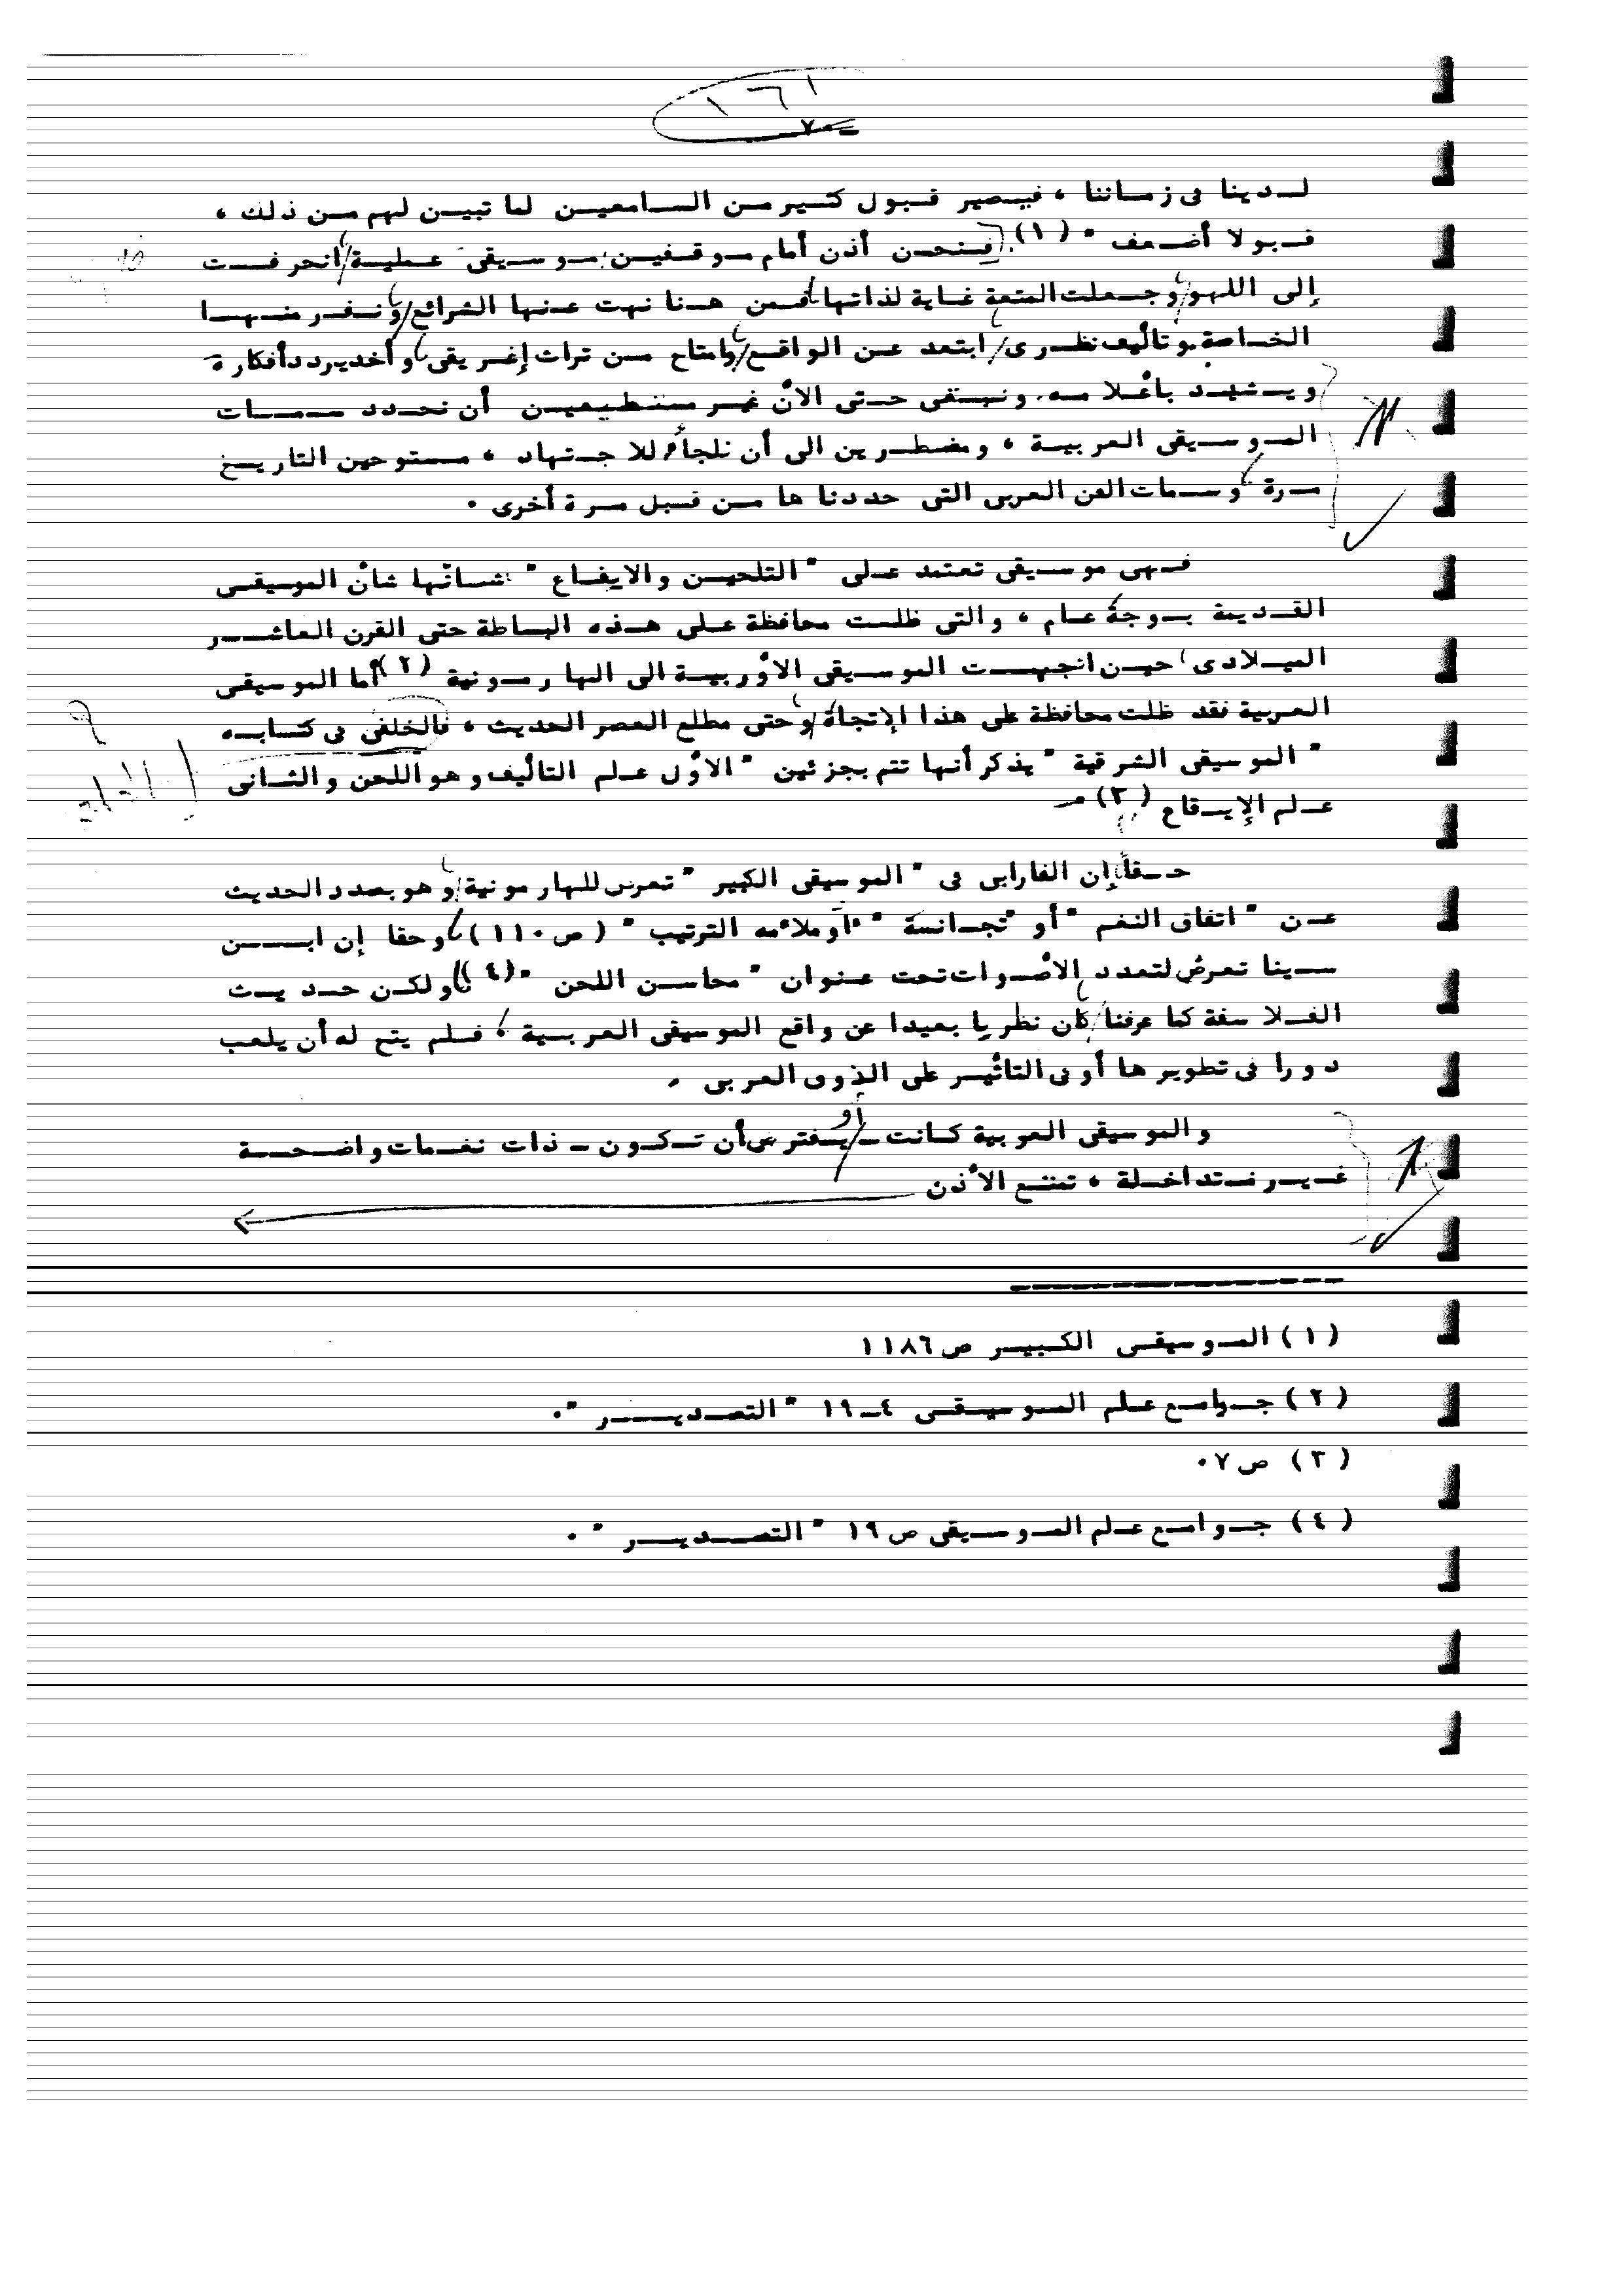 ١٦١
لدينا فى زماننا ، فيصير قبول كثير من السامعين لما تبين لهم من ذلك ،
قبولا أضعف " (١). فنحن أذن أمام موقفين : موسيقى عملية انحرفت
إلى اللهو وجعلت المتعة غاية لذاتها فمن هنا نهت عنها الشرائع ونفر منها
الخاصة وتأليف نظرى ابتعد عن الواقع وامتاح من تراث إغريقى وأخذ يردد أفكاره
ويشيد بأعلامه. ونبقى حتى الآن غير مستطيعين أن نحدد سمات
الموسيقى العربية ، ومضطرين الى أن نلجأ للاجتهاد ، مستوحين التاريخ
مرة وسمات الفن العربى التى حددناها من قبل مرة أخرى .
فهى موسيقى تعتمد على " التلحين والايقاع " شأنها شأن الموسيقى
القديمة بوجه عام ، والتى ظلت محافظة على هذه البساطة حتى القرن العاشر
الميلادى حين اتجهت الموسيقى الأوربية الى الهارمونية (٢) أما الموسيقى
العربية فقد ظلت محافظة على هذا الإتجاه وحتى مطلع العصر الحديث ، فالخلفى فى كتابه
" الموسيقى الشرقية " يذكر أنها تتم بجزئين " الأول علم التأليف وهو اللحن والثانى
علم الإيقاع (٣)
حقا إن الفارابى فى " الموسيقى الكبير " تعرض للهارمونية وهو بصدد الحديث
عن " اتفاق النغم " أو " تجانسه " أو ملاءمه الترتيب " ( ص ١١٠ ) وحقا إن ابن
سينا تعرض لتعدد الأصوات تحت عنوان " محاسن اللحن " (٤) ولكن حديث
الفلاسفة كما عرفنا كان نظريا بعيدا عن واقع الموسيقى العربية ، فلم يتح له أن يلعب
دورا فى تطويرها أو فى التأثير على الذوق العربى .
والموسيقى العربية كانت ــ أو يفترض أن تكون ــ ذات نغمات واضحة
غير متداخلة ، تمتع الأذن
(١) الموسيقى الكبير ص ١١٨٦
(٢) جوامع علم الموسيقى ٤ــ١٩ " التصدير ".
(٣) ص ٧.
(٤) جوامع علم الموسيقى ص ١٩ " التصدير " .